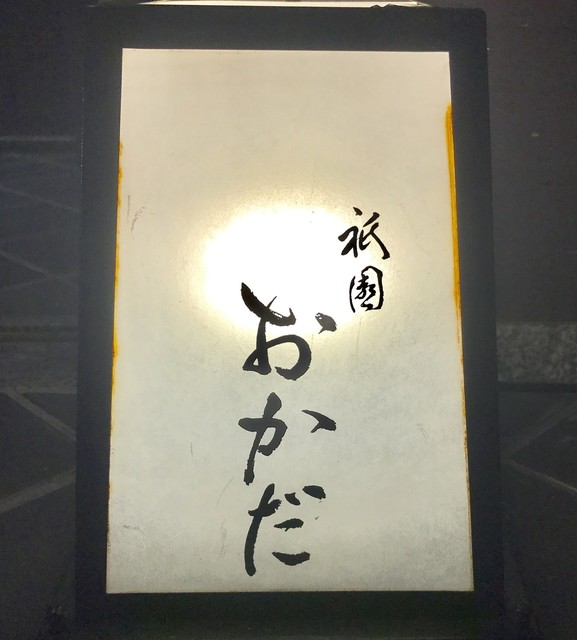 祇園
おかだ